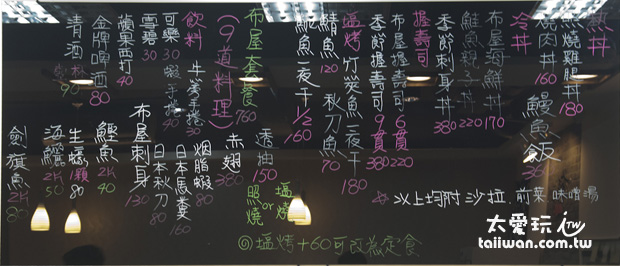 熱丼
照燒雞腿丼 180
燒肉丼 160
鰻魚飯
冷丼
布屋海鮮丼 170
鮭魚親子丼 220
季節刺身丼 380
握壽司
布屋握壽司 6貫 220
季節握壽司 9貫 380
塩烤
竹筴魚一夜干 180
鯖魚 120
秋刀魚 70
鯱魚一夜干 1/2 160
布屋套餐 760
(9道料理)
透油 150
赤翅 380
照燒 or 塩燒
飲料
可樂 30
雪碧 30
蘋果西打 40
金牌啤酒 80
清酒 90
牛蒡手捲 30
蝦手捲 40
胭脂蝦 80
日本馬糞 160
日本秋刀 80
布屋刺身 130
鰹魚 2K 40
生蠔 1顆 80
海鱺 2K 50
劍旗魚 2K 80
以上均附 沙拉. 前菜 味噌湯
◎塩烤+60可改為定食
太愛玩
taiiwan.com.tw